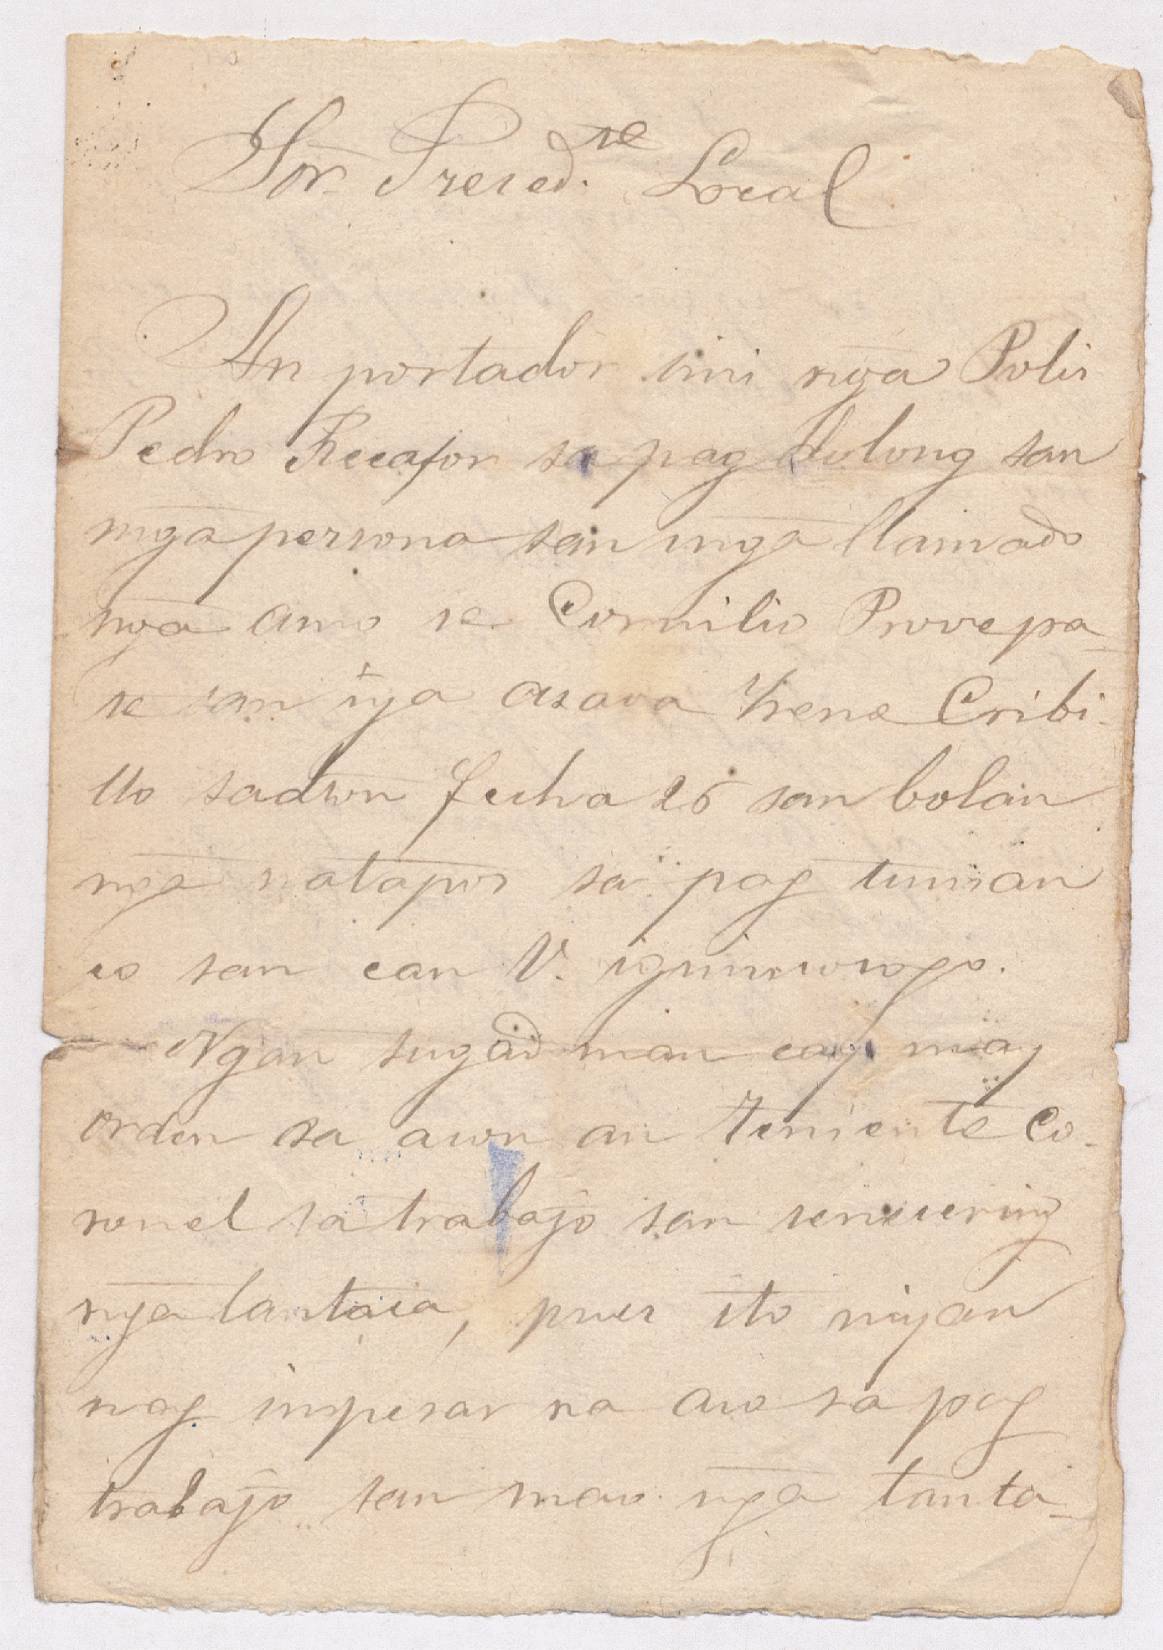 Sor. Presed.te Local
An portador sini nga Polis
Pedro Recafor sa pag dolong san
mga persona san mga llamado
nga amo se Cornilio Provepa-
se san iya asava Irene Cribi-
llo sadton fecha 26 san bolan
nga natapos sa pag tuman
co san can V. iguinsosogo.
Ngan sugad man cay may
orden sa acon an Teniente Co-
ronel sa trabajo san
nga lantaia, pues ito niyan
nag impesar na aco sa pag
trabajo san mao nga lanta-